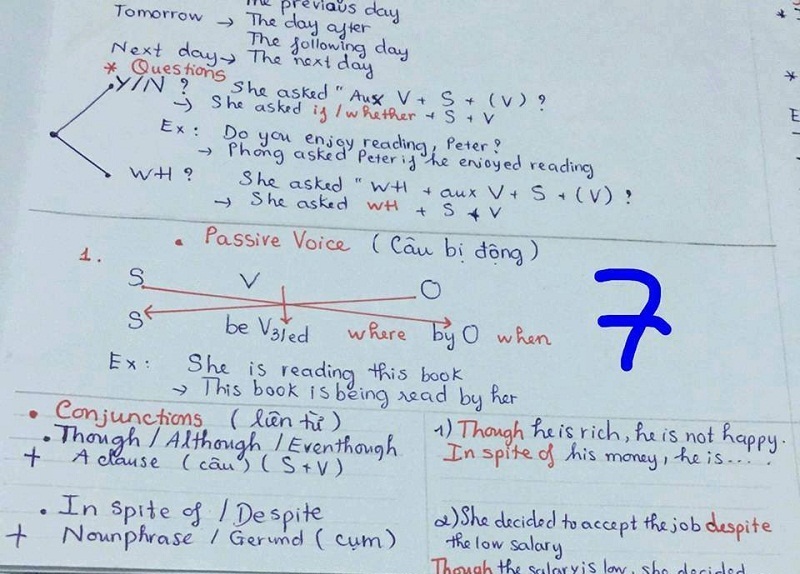 The previous day
Tomorrow → The day after
The following day
Next day → The next day
* Questions
Y/N ? She asked " Aux V + S + (V) ?
→ She asked if / whether + S + V
Ex : Do you enjoy reading, Peter ?
→ Phong asked Peter if he enjoyed reading
WH ? She asked " WH + aux V + S + (V) ?
→ She asked WH + S + V
1. • Passive Voice ( Câu bị động )
S V O
S be V3/ed where by O when
Ex : She is reading this book
→ This book is being read by her
7
• Conjunctions ( liên từ )
• Though / Although / Eventhough
+ A clause ( câu ) ( S + V )
• In spite of / Despite
+ Nounphrase / Gerund ( cụm )
1) Though he is rich, he is not happy.
In spite of his money, he is .....
2) She decided to accept the job despite
the low salary
Though the salary is low, she decided
*
*
E